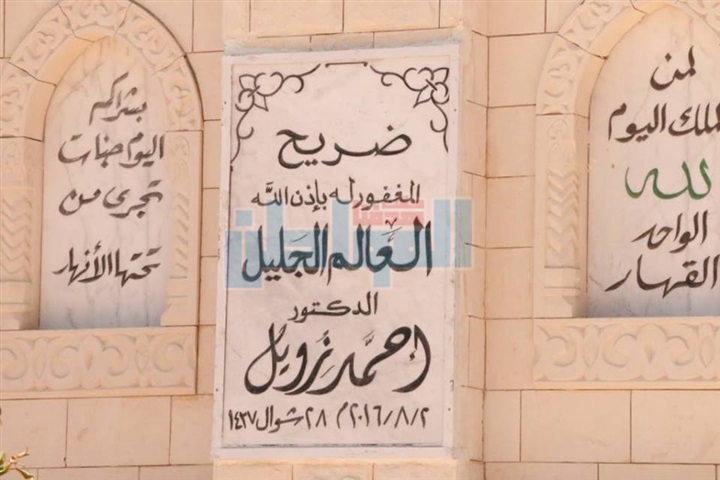 لمن
الملك اليوم
لله
الواحد
القهار
ضريح
المغفور له بإذن الله
العالم الجليل
الدكتور
أحمد زويل
٢٠١٦/٨/٢م ٢٨ شوال ١٤٣٧
بشراكم
اليوم جنات
تجرى من
تحتها الأنهار